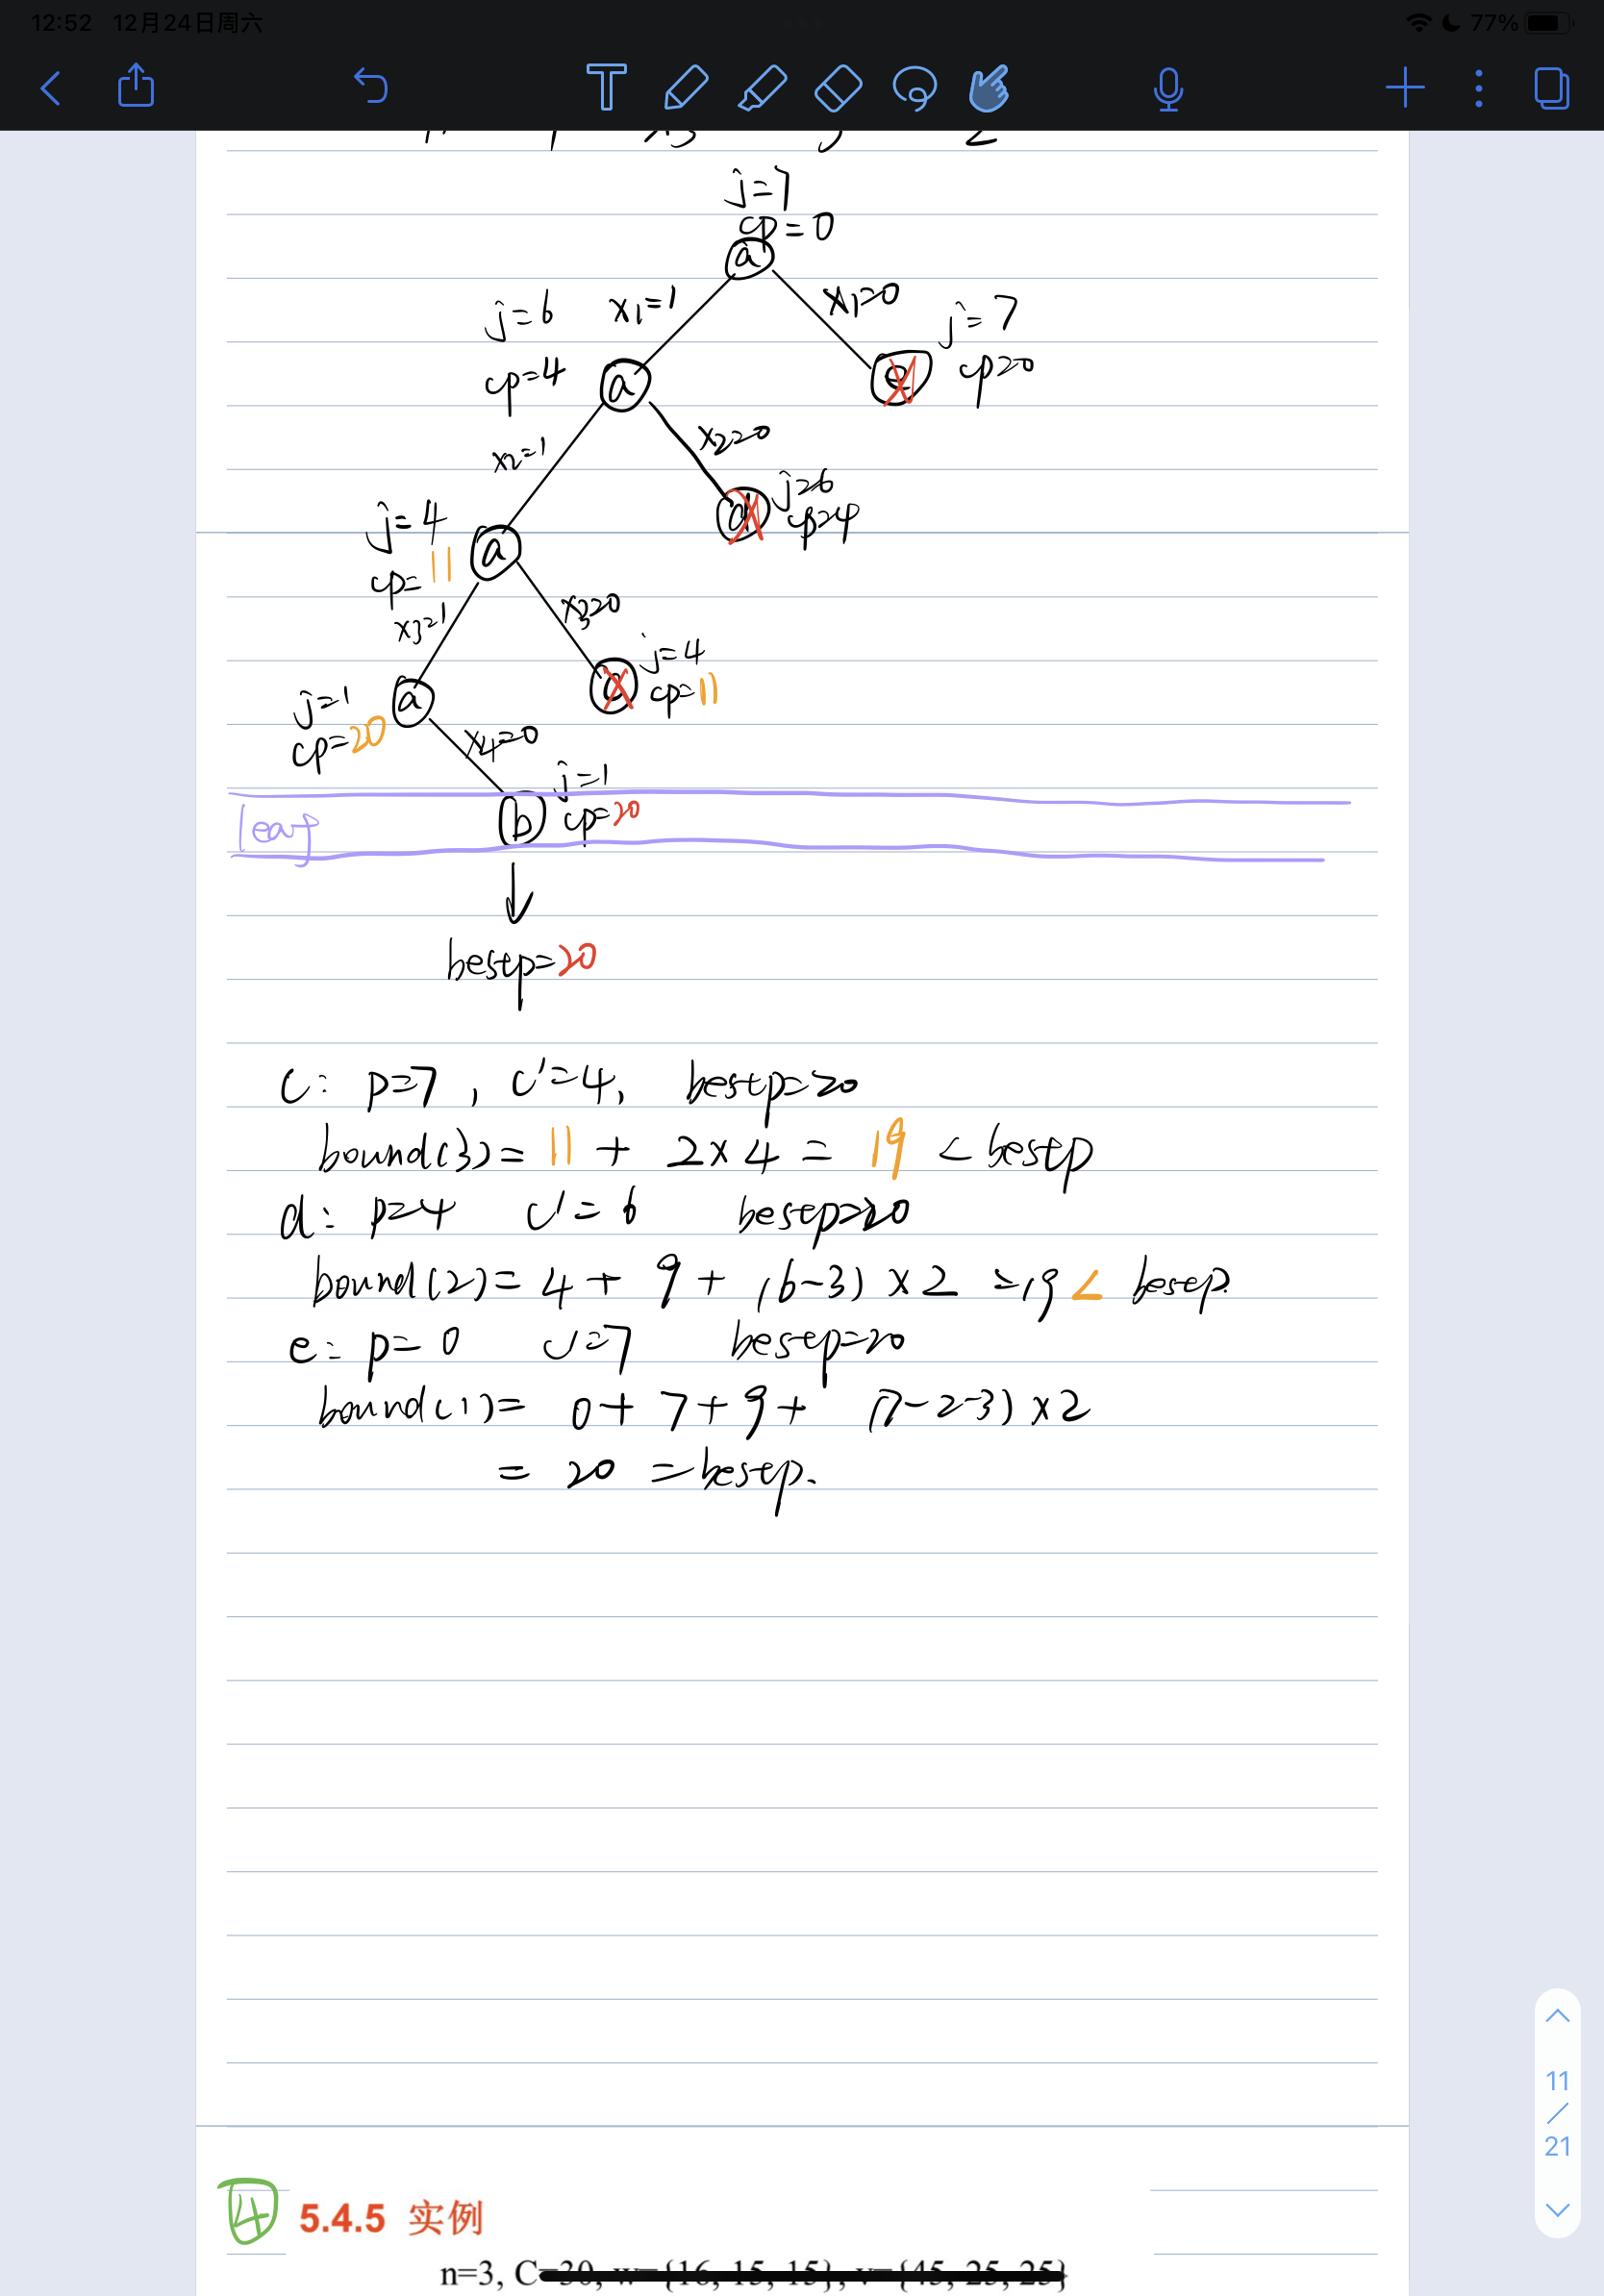 12:52 12月24日周六 77%
j=7
cp=0
a
x1=1 x1=0
j=6 j=7
cp=4 a e cp=0
x2=1 x2=0
j=6
d cp=4
j=4
cp=11 a
x3=1 x3=0
j=4
c cp=11
j=1
cp=20 a
x4=0
j=1
leaf b cp=20
bestp=20
c: p=7, c'=4, bestp=20
bound(3)= 11 + 2×4 = 19 < bestp
d: p=4 c'=6 bestp=20
bound(2)= 4+ 9+ (6-3)×2 =19 < bestp
e: p=0 c'=7 bestp=20
bound(1)= 0+7+9+ (7-2-3)×2
= 20 =bestp.
11
/
21
4 5.4.5 实例
n=3, C=30, w={16, 15, 15}, v={45, 25, 25}